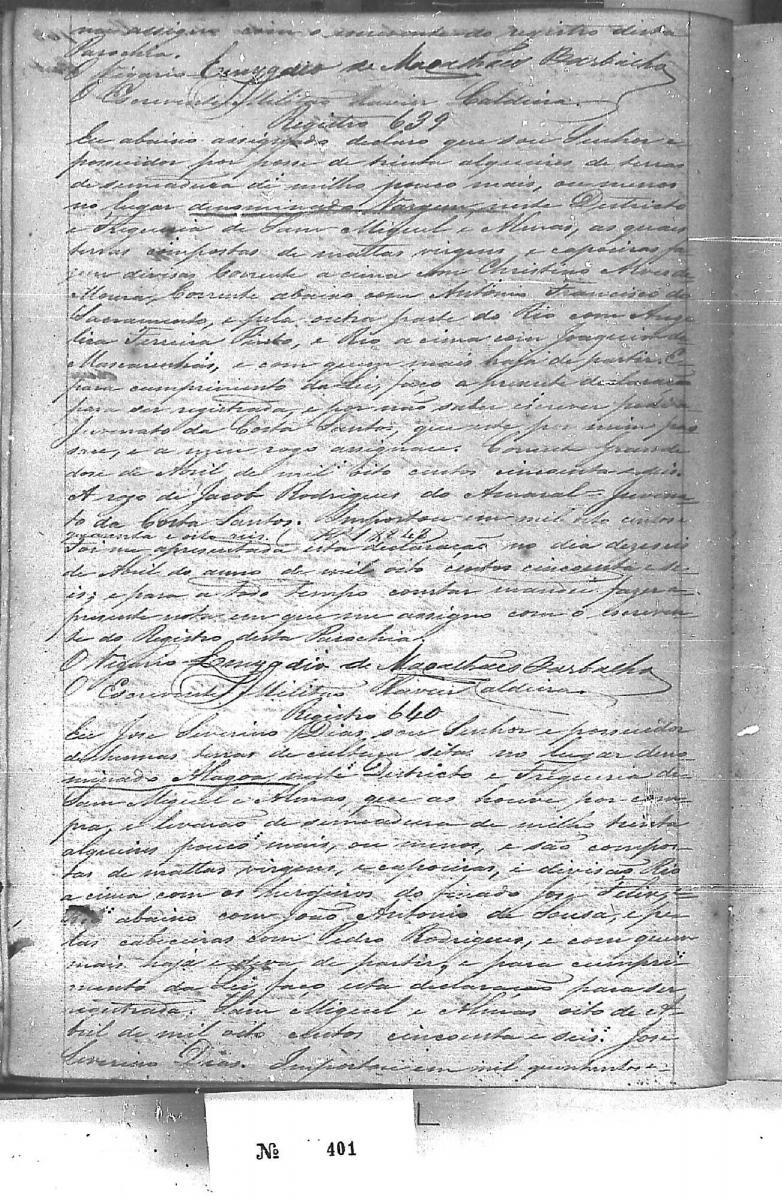 me assigno com o escrevente do registro desta
Parochia.
O Vigario Emygdio de Magalhães Barbalho
O Escrevente Militão Xavier Caldeira.
Registro 639
Eu abaixo assignado declaro que sou Senhor e
possuidor por posse de trinta alqueires de terras
de semeadura de milho pouco mais, ou menos
no lugar denominado Vargem neste Districto
e Freguezia de Sam Miguel e Almas, as quais
terras compostas de mattas virgens, e capoeiras, fa-
zem divisas Corrente acima com Christino Alves de
Moura, Corrente abaixo com Antonio Francisco do
Sacramento, e pela outra parte do Rio com Ange-
lica Ferreira Pinto, e Rio acima com Joaquim de
Mascarenhas, e com quem mais haja de partir. E
para cumprimento da Lei, faço a presente declaração
para ser registrada, e por não saber escrever pedi a
Juvenato da Costa Santos, que este por mim pas
sasse, e a meu rogo assignace. Corrente Grande
dose de Abril de mil oito centos cincoenta e seis.
A rogo de Jacob Rodrigues do Amaral = Juvena-
to da Costa Santos. Importou em mil oito centos e
quarenta e oito reis. (
Foi me apresentada esta declaração no dia dezeseis
de Abril do anno de mil oito centos cincoenta e se-
is; e para a todo tempo constar mandei fazer a
presente nota em que me assigno com o escreven-
te do Registro desta Parochia.
O Vigario Emygdio de Magalhães Barbalho
O Escrevente Militão Xavier Caldeira.
Registro 640
Eu Jose Severino Dias, sou Senhor e possuidor
de humas terras de cultura sitas no lugar deno-
minado Alagoa neste Districto e Freguezia de
Sam Miguel e Almas, que as houve por com-
pra, e levarão de semeadura de milho trinta
alqueires pouco mais, ou menos, e são compos-
tas de mattas virgens, e capoeiras, e divisão Rio
acima com os herdeiros do finado Jose Felix,
abaixo com João Antonio de Sousa, e pe-
las cabeceiras com Pedro Rodrigues, e com quem
mais haja e deva de partir, e para cumpri-
mento da Lei, faço esta declaração para ser
registrada. Sam Miguel e Almas oito de A-
bril de mil oito centos cincoenta e seis. Jose
Severino Dias. Importou em mil quinhentos e
Nº 401